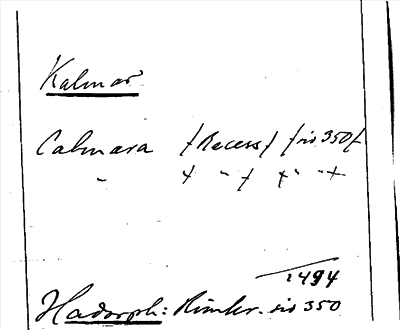 Kalmar
Calmara /Recess/ /sid 350/
" / " / /" "/
1494
Hadorph: Rimkr. sid 350